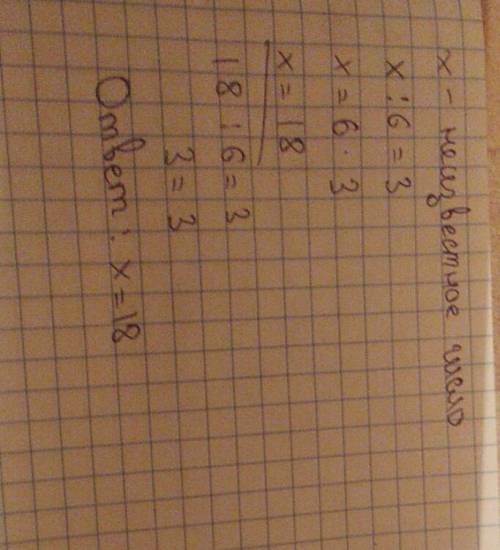 x - неизвестное число
x : 6 = 3
x = 6 · 3
x = 18
18 : 6 = 3
3 = 3
Ответ: x = 18